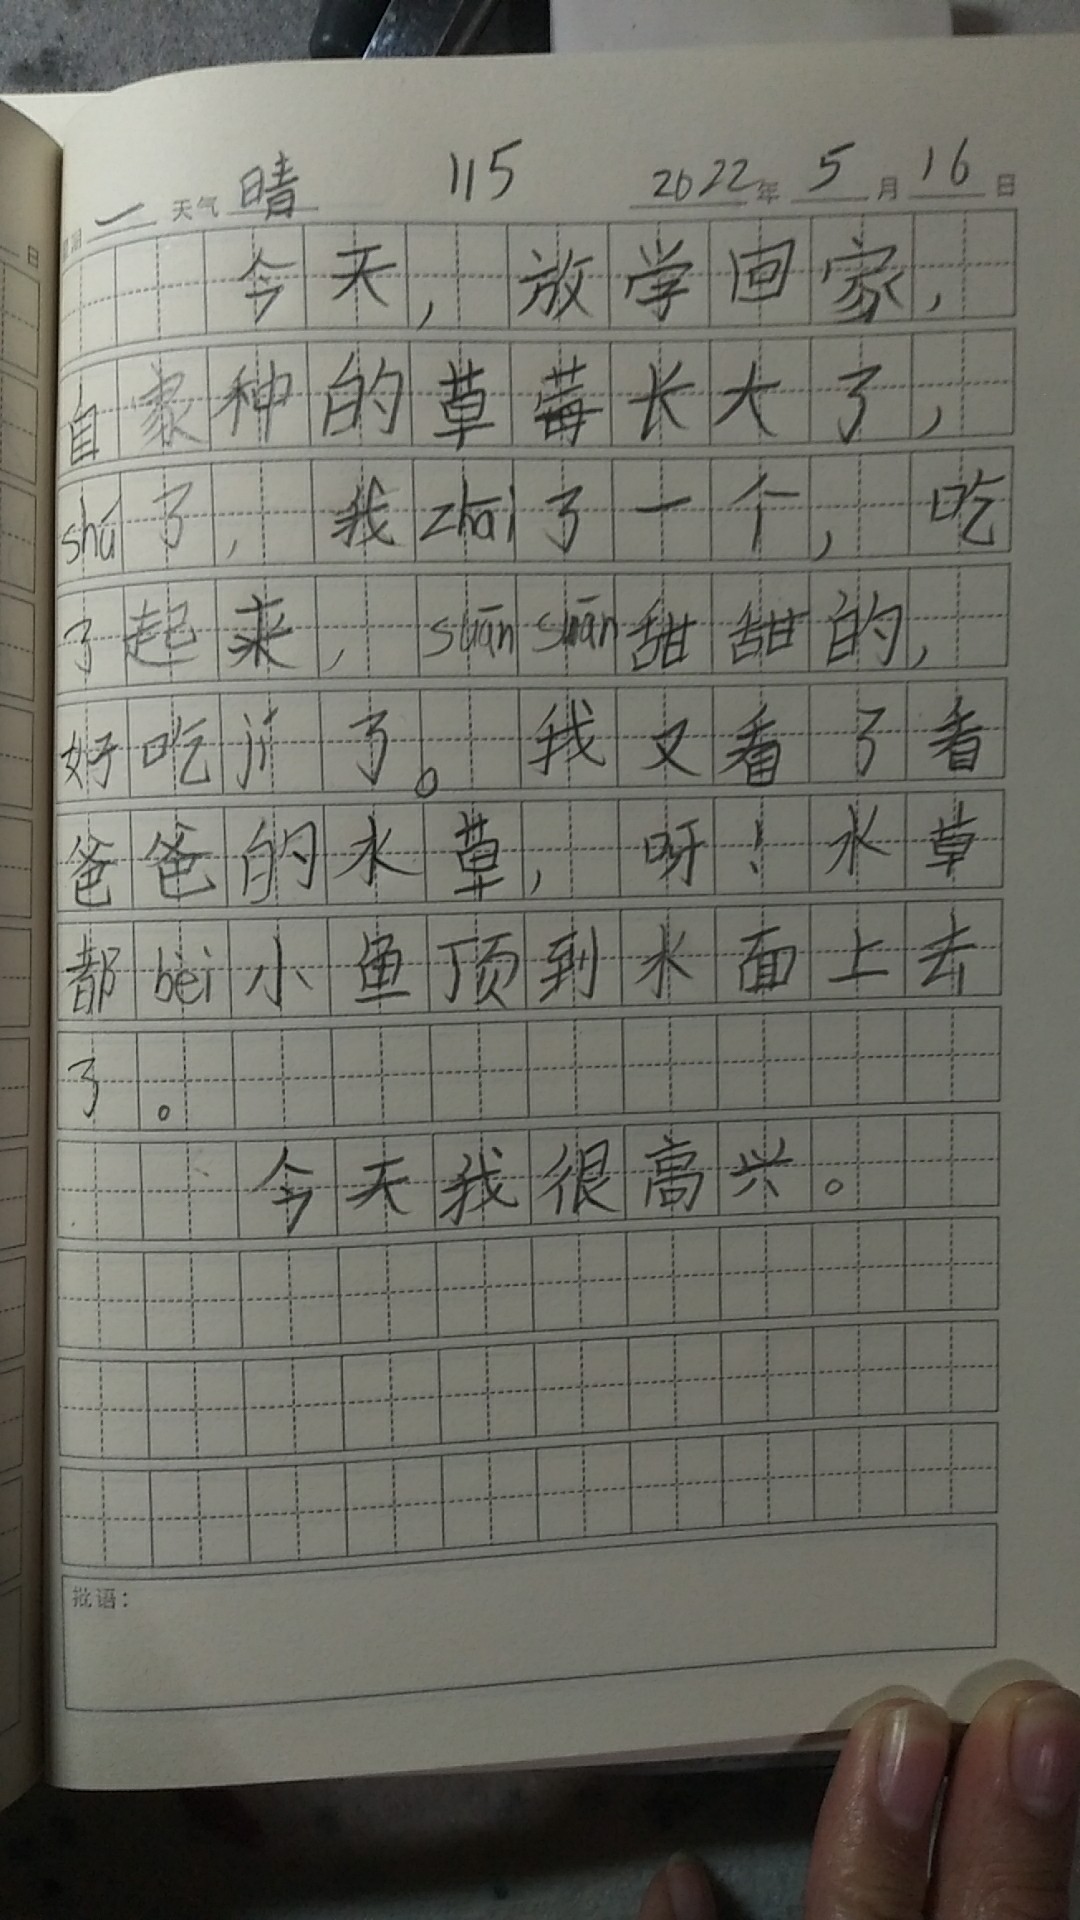 星期 一 天气 晴 115 2022 年 5 月 16 日
今天，放学回家，
自家种的草莓长大了，
shú了，我zhāi了一个，吃
了起来，suān suān甜甜的，
好吃jí了。我又看了看
爸爸的水草，呀！水草
都bèi小鱼顶到水面上去
了。
今天我很高兴。
批语：
日